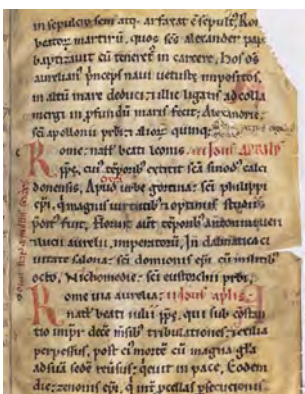 in sepulcro sem atq; arfaxat ē sepult'; Rom
beatoꝝ martirū, quos scs alexander papa
baptizauit cū tener& in carcere, hos oms
aurelian' p̄nceps naui uetuste impositos,
in altū mare deduci, & illic ligatis ad colla
mergi in p̄fundū maris fecit; Alexandrie,
sci apollonii prbi, & alioꝝ quinq;
Rome, nat̄ beati leonis. iii idus aprilis
pp̄e, cui' tēporib; extitit sca sinod' calci
donensis, Apud urbe gortina, sci philippi
ep̄i, q̄ magnis uirtutib; & optimis studiis
pot' fuit, Floruit aūt tēporib; antonini ueri
& lucii aurelii, imperatorū, In dalmatia ci
uitate salona, sci domionis ep̄i, cū militib;
octo, Nichomedie, sci eustorchii prbi,
Rome uia aurelia, ii idus aplis
nat̄ beati iulii pp̄e, qui sub cōstan
tio imp̄r decē mīsib; tribulationes, & exilia
perpessus, post ei' mortē cū magna gl̄a
ad suā sedē reūsus, qeuit in pace, Eodem
die, zenonis ep̄i, q̄ int̄ pcellas psecucionis